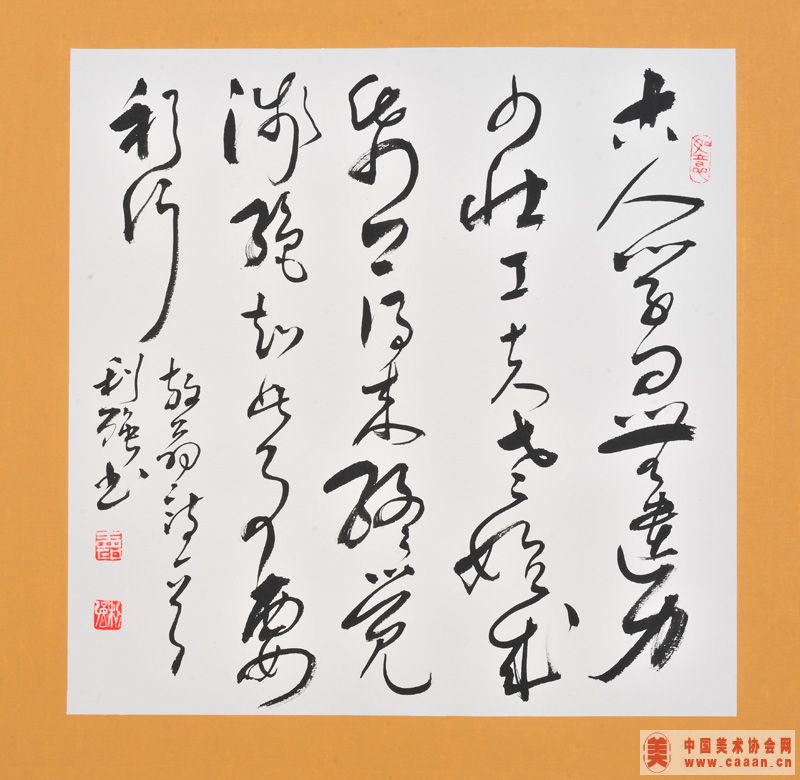 古人学问无遗力
少壮工夫老始成
纸上得来终觉
浅绝知此事要
躬行
放翁诗一首
利强书
美
中国美术协会网
www.caaan.cn